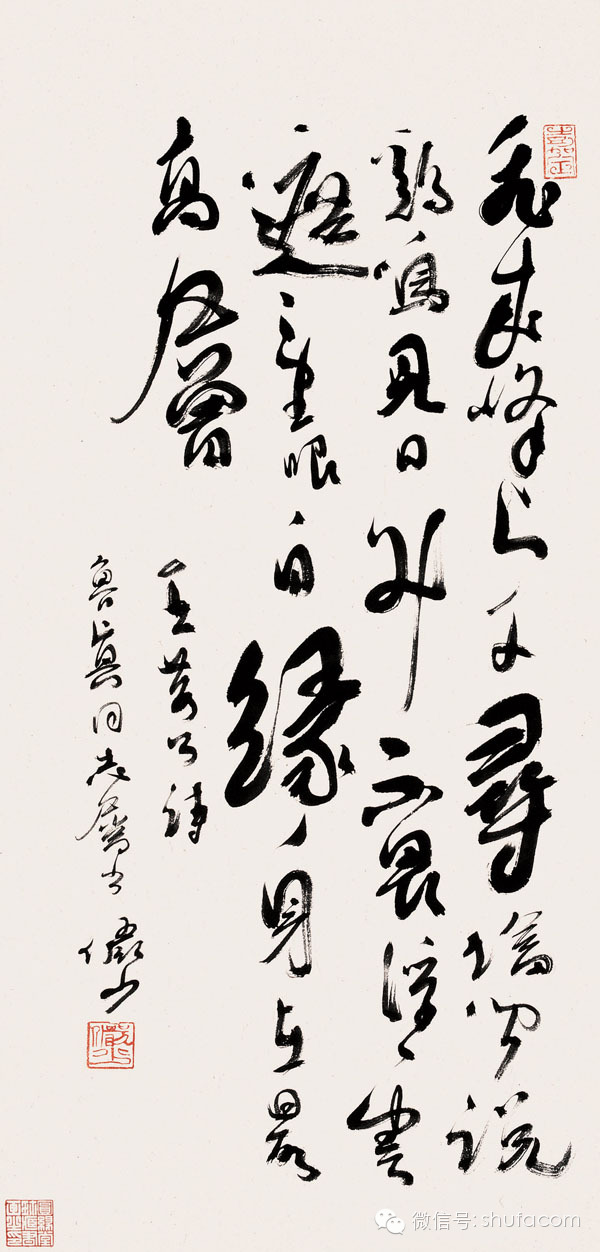 飛來峰上千尋塔聞説
鷄鳴見日升不畏浮雲
遮望眼自緣身在最
高層
王荆公詩
魯真同志屬書 儼少
微信号: shufacom